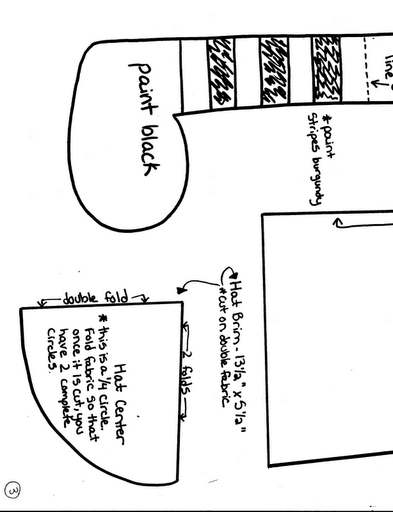 line
paint black
* paint
stripes burgundy
Hat Brim - 13 1/2" x 5 1/2"
* cut on double fabric
double fold
2 folds
Hat Center
* this is a 1/4 circle.
Fold fabric so that
once it is cut, you
have 2 complete
circles.
3